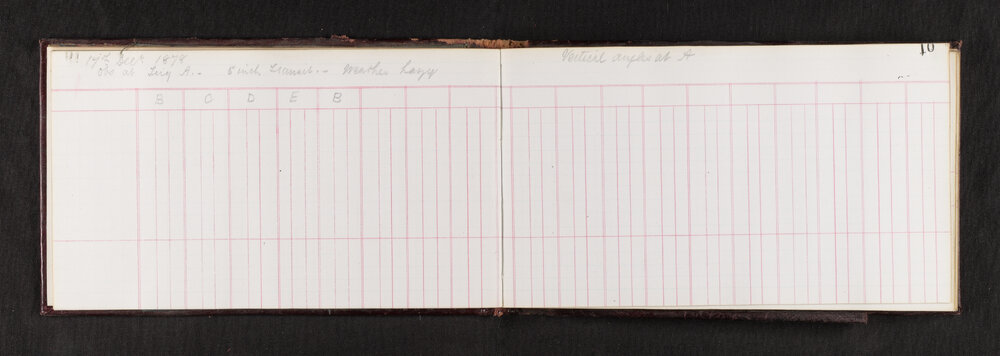 17th Decr 1878
Obs at Trig A. - 5 inch Transit. - Weather hazy
B C D E B
Vertical angles at A
10